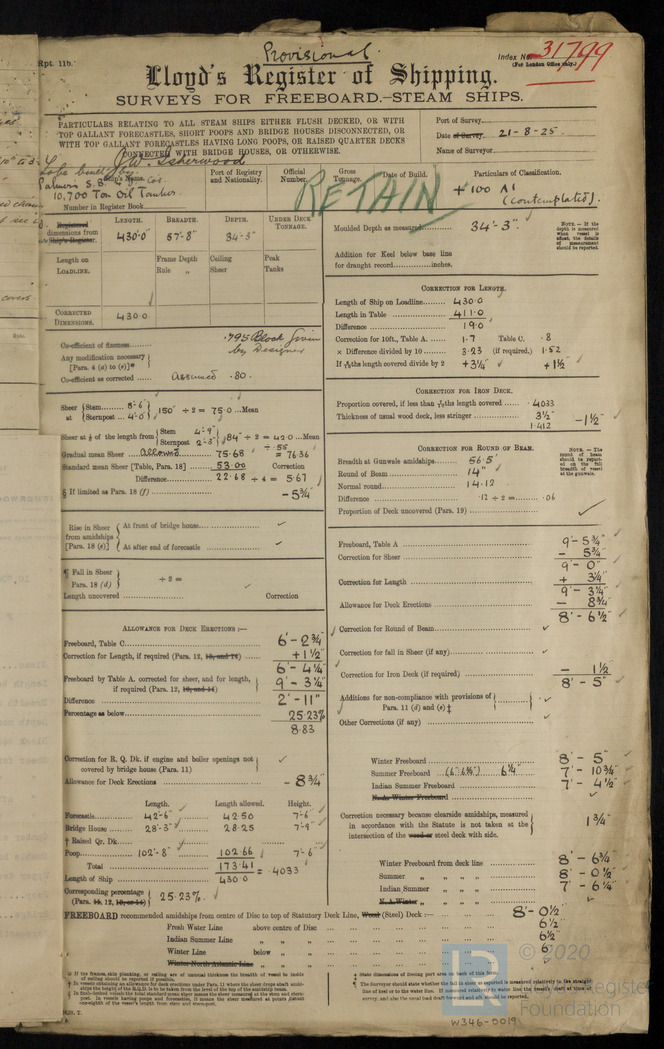 Rpt. 11b.
Provisional.
Index No. 31,799
(For London Office only.)
Lloyd's Register of Shipping.
SURVEYS FOR FREEBOARD.—STEAM SHIPS.
PARTICULARS RELATING TO ALL STEAM SHIPS EITHER FLUSH DECKED, OR WITH
TOP GALLANT FORECASTLES, SHORT POOPS AND BRIDGE HOUSES DISCONNECTED, OR
WITH TOP GALLANT FORECASTLES HAVING LONG POOPS, OR RAISED QUARTER DECKS
CONNECTED WITH BRIDGE HOUSES, OR OTHERWISE.
Port of Survey
Date of Survey 21-8-25.
Name of Surveyor
J.W. Isherwood
to be built by:
Palmers S.B. & Co.
10,700 Ton Oil Tanker.
Number in Register Book
Port of Registry and Nationality.
Official Number.
Gross Tonnage.
Date of Build.
Particulars of Classification.
RETAIN
+ 100 A1
(contemplated).
Registered dimensions from Ship's Register.
LENGTH. BREADTH. DEPTH. UNDER DECK TONNAGE.
430'-0" 57'-8" 34'-3"
Length on LOADLINE.
Frame Depth Ceiling Peak
Rule " Sheer Tanks
CORRECTED DIMENSIONS. 430·0
Moulded Depth as measured 34'-3".
NOTE.—If the depth is measured when vessel is afloat, the details of measurement should be reported.
Addition for Keel below base line
for draught record inches.
CORRECTION FOR LENGTH.
Length of Ship on Loadline 430·0
Length in Table 411·0
Difference 19·0
Correction for 10ft., Table A. 1·7 Table C. ·8
× Difference divided by 10 3·23 (if required.) 1·52
If 6/10ths length covered divide by 2 +3¼" +1½"
Co-efficient of fineness ·795 Block Given by Designer
Any modification necessary
[Para. 4 (d) to (e)]*
Co-efficient as corrected Assumed ·80.
CORRECTION FOR IRON DECK.
Proportion covered, if less than 7/10ths length covered ·4033
Thickness of usual wood deck, less stringer 3½"
1·412 −1½"
Sheer at Stem 8'-6" Sternpost 4'-0" 150" ÷ 2 = 75·0 Mean
Sheer at ⅛ of the length from Stem 4'-9" Sternpost 2'-3" 84" ÷ 2 = 42·0 Mean
÷ ·55
Gradual mean Sheer allowed 75·68 = 76·36
Standard mean Sheer [Table, Para. 18] 53·00 Correction
Difference 22·68 ÷ 4 = 5·67
§ If limited as Para. 18 (f) −5¾"
CORRECTION FOR ROUND OF BEAM.
NOTE.—The round of beam should be reported on the full breadth of vessel at the gunwale.
Breadth at Gunwale amidships 56·5'
Round of Beam 14"
Normal round 14·12
Difference ·12 ÷ 2 = ·06
Proportion of Deck uncovered (Para. 19)
Rise in Sheer from amidships [Para. 18 (e)]
At front of bridge house
At after end of forecastle
¶ Fall in Sheer Para. 18 (d) ÷ 2 =
Length uncovered Correction
Freeboard, Table A 9'-5¾"
Correction for Sheer − 5¾"
9'-0"
Correction for Length + 3¼"
9'-3¼"
Allowance for Deck Erections − 8¾"
8'-6½"
Correction for Round of Beam
Correction for fall in Sheer (if any)
Correction for Iron Deck (if required) − 1½"
8'-5"
Additions for non-compliance with provisions of
Para. 11 (d) and (e) ‡
Other Corrections (if any)
ALLOWANCE FOR DECK ERECTIONS :—
Freeboard, Table C 6'-2¾"
Correction for Length, if required (Para. 12, 13, and 14) +1½"
6'-4¼"
Freeboard by Table A. corrected for sheer, and for length,
if required (Para. 12, 13, and 14) 9'-3¼"
Difference 2'-11"
Percentage as below 25·23%
8·83
Correction for R. Q. Dk. if engine and boiler openings not
covered by bridge house (Para. 11)
Allowance for Deck Erections − 8¾"
Winter Freeboard 8'-5"
Summer Freeboard (6"-6½") 6¼" 7'-10¾"
Indian Summer Freeboard 7'-4½"
N. A. Winter Freeboard
Correction necessary because clearside amidships, measured
in accordance with the Statute is not taken at the
intersection of the wood or steel deck with side. 1¾"
Length. Length allowed. Height.
Forecastle 42'-6" 42·50 7'-6"
Bridge House 28'-3" 28·25 7'-9"
† Raised Qr. Dk.
Poop 102'-8" 102·66 7'-6"
Total 173·41
Length of Ship 430·0 = ·4033
Corresponding percentage
(Para. 11, 12, 13, or 14) 25·23%.
Winter Freeboard from deck line 8'-6¾"
Summer " " " 8'-0½"
Indian Summer " " " 7'-6¼"
N. A. Winter " " "
FREEBOARD recommended amidships from centre of Disc to top of Statutory Deck Line, Wood (Steel) Deck :— 8'-0½"
Fresh Water Line above centre of Disc 6½"
Indian Summer Line " " " 6½"
Winter Line below " " 6"
Winter North Atlantic Line " "
© 2020
LR
Foundation
W346-0019